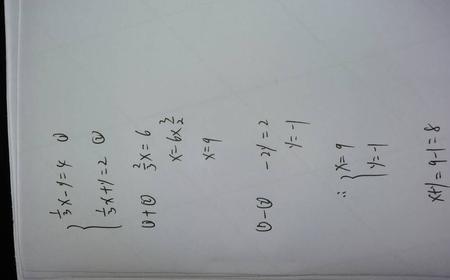 { 1/3x-y=4 ①
1/3x+y=2 ②
①+② 2/3x=6
x=6×3/2
x=9
①-② -2y=2
y=-1
∴ { x=9
y=-1
x+y=9-1=8